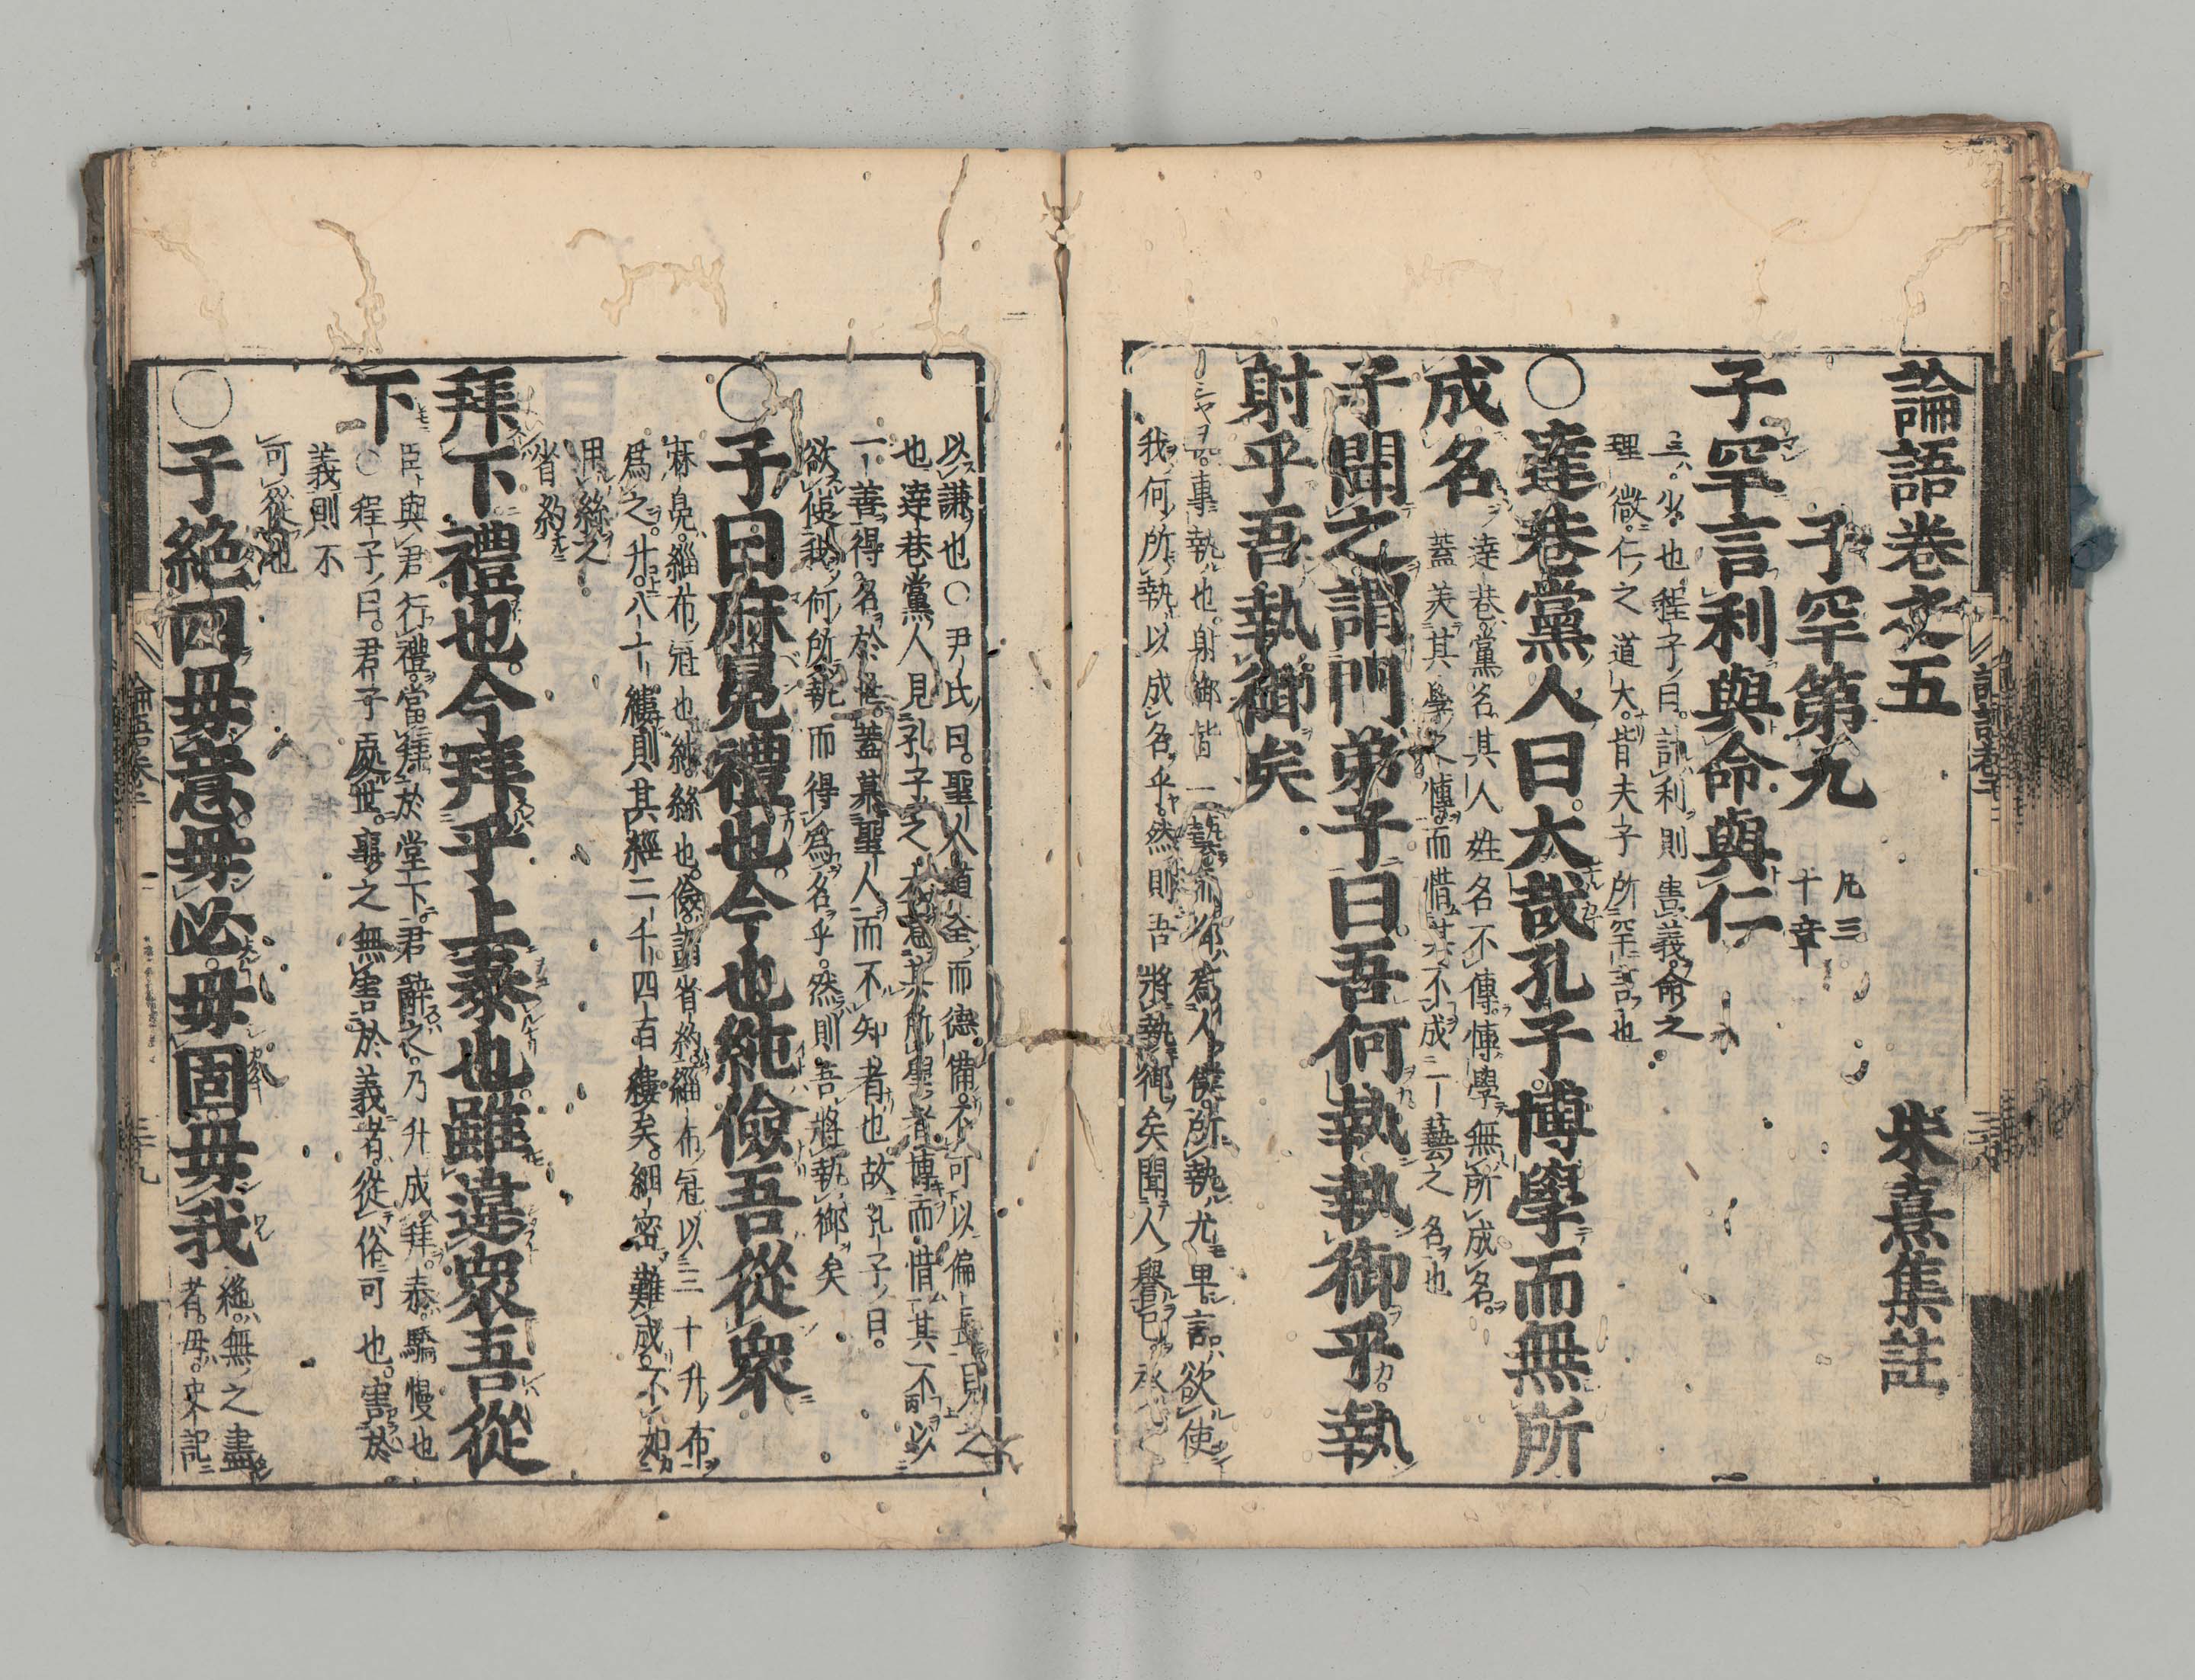 論語卷之五 朱熹集註
子罕第九 凡三十章
子罕言利與命與仁
罕。少也程子曰。計利則害義。命之
理微。仁之道大。皆夫子所罕言也
○達巷黨人曰。大哉孔子。博學而無所
成名
達巷。黨名。其人姓名不傳。博學無所成名。
蓋美其學之博。而惜其不成一藝之名也
子聞之謂門弟子曰。吾何執執御乎。執
射乎吾執御矣
執。專執也。射御皆一藝。而御為人僕。所執尤卑。言欲使
我何所執以成名乎。然則吾將執御矣聞人譽己。承之
以謙也○尹氏曰。聖人道全而德備。不可以偏長見之
也達巷黨人見孔子之大。意其所學者博。而惜其不以
一善得名於世。蓋慕聖人而不知者也故孔子曰。
欲使我何所執而得為名乎。然則。吾將執御矣
○子曰麻冕禮也。今也純儉吾從衆
麻冕。緇布冠也純。絲也。儉。謂省約緇布冠以三十升布
為之。升。八十縷。則其經二千四百縷矣。細密難成。不如
用絲之
省約
拜下禮也。今拜乎上泰也。雖違衆吾從
下
臣與君行禮。當拜於堂下。君辭之。乃升成拜。泰。驕慢也
○程子曰。君子處世。事之無害於義者。從俗可也。害於
義則不
可從也
○子絶四毋意。毋必。毋固毋我
絶。無之盡
者。毋。史記
論語卷五 三十九